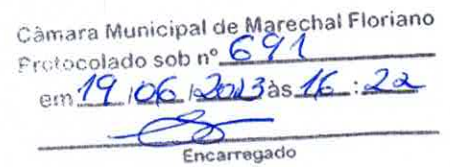 Câmara Municipal de Marechal Floriano
Protocolado sob nº 691
em 19/06/2013 às 16:22
Encarregado